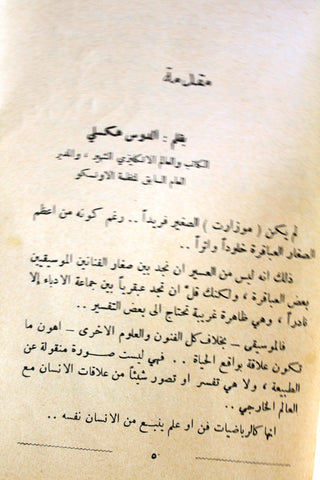 مقدمة
بقلم : الدوس هكسلي
الكاتب والعالم الانكليزي الشهير ، والمدير
العام السابق لمنظمة الاونسكو
لم يكن ( موزارت ) الصغير فريداً .. رغم كونه من اعظم
الصغار العباقرة خلوداً واثراً ..
ذلك انه ليس من العسير ان نجد بين صغار الفنانين الموسيقيين
بعض العباقرة ، ولكنك قلّ ان تجد عبقرياً بين جماعة الادباء إلا
نادراً ، وهي ظاهرة غريبة تحتاج الى بعض التفسير ..
فالموسيقى – بخلاف كل الفنون والعلوم الاخرى – اهون ما
تكون علاقة بواقع الحياة .. فهي ليست صورة منقولة عن
الطبيعة ، ولا هي تفسر او تصور شيئاً من علاقات الانسان مع
العالم الخارجي ..
انها كالرياضيات فن او علم ينبع من الانسان نفسه ..
٥